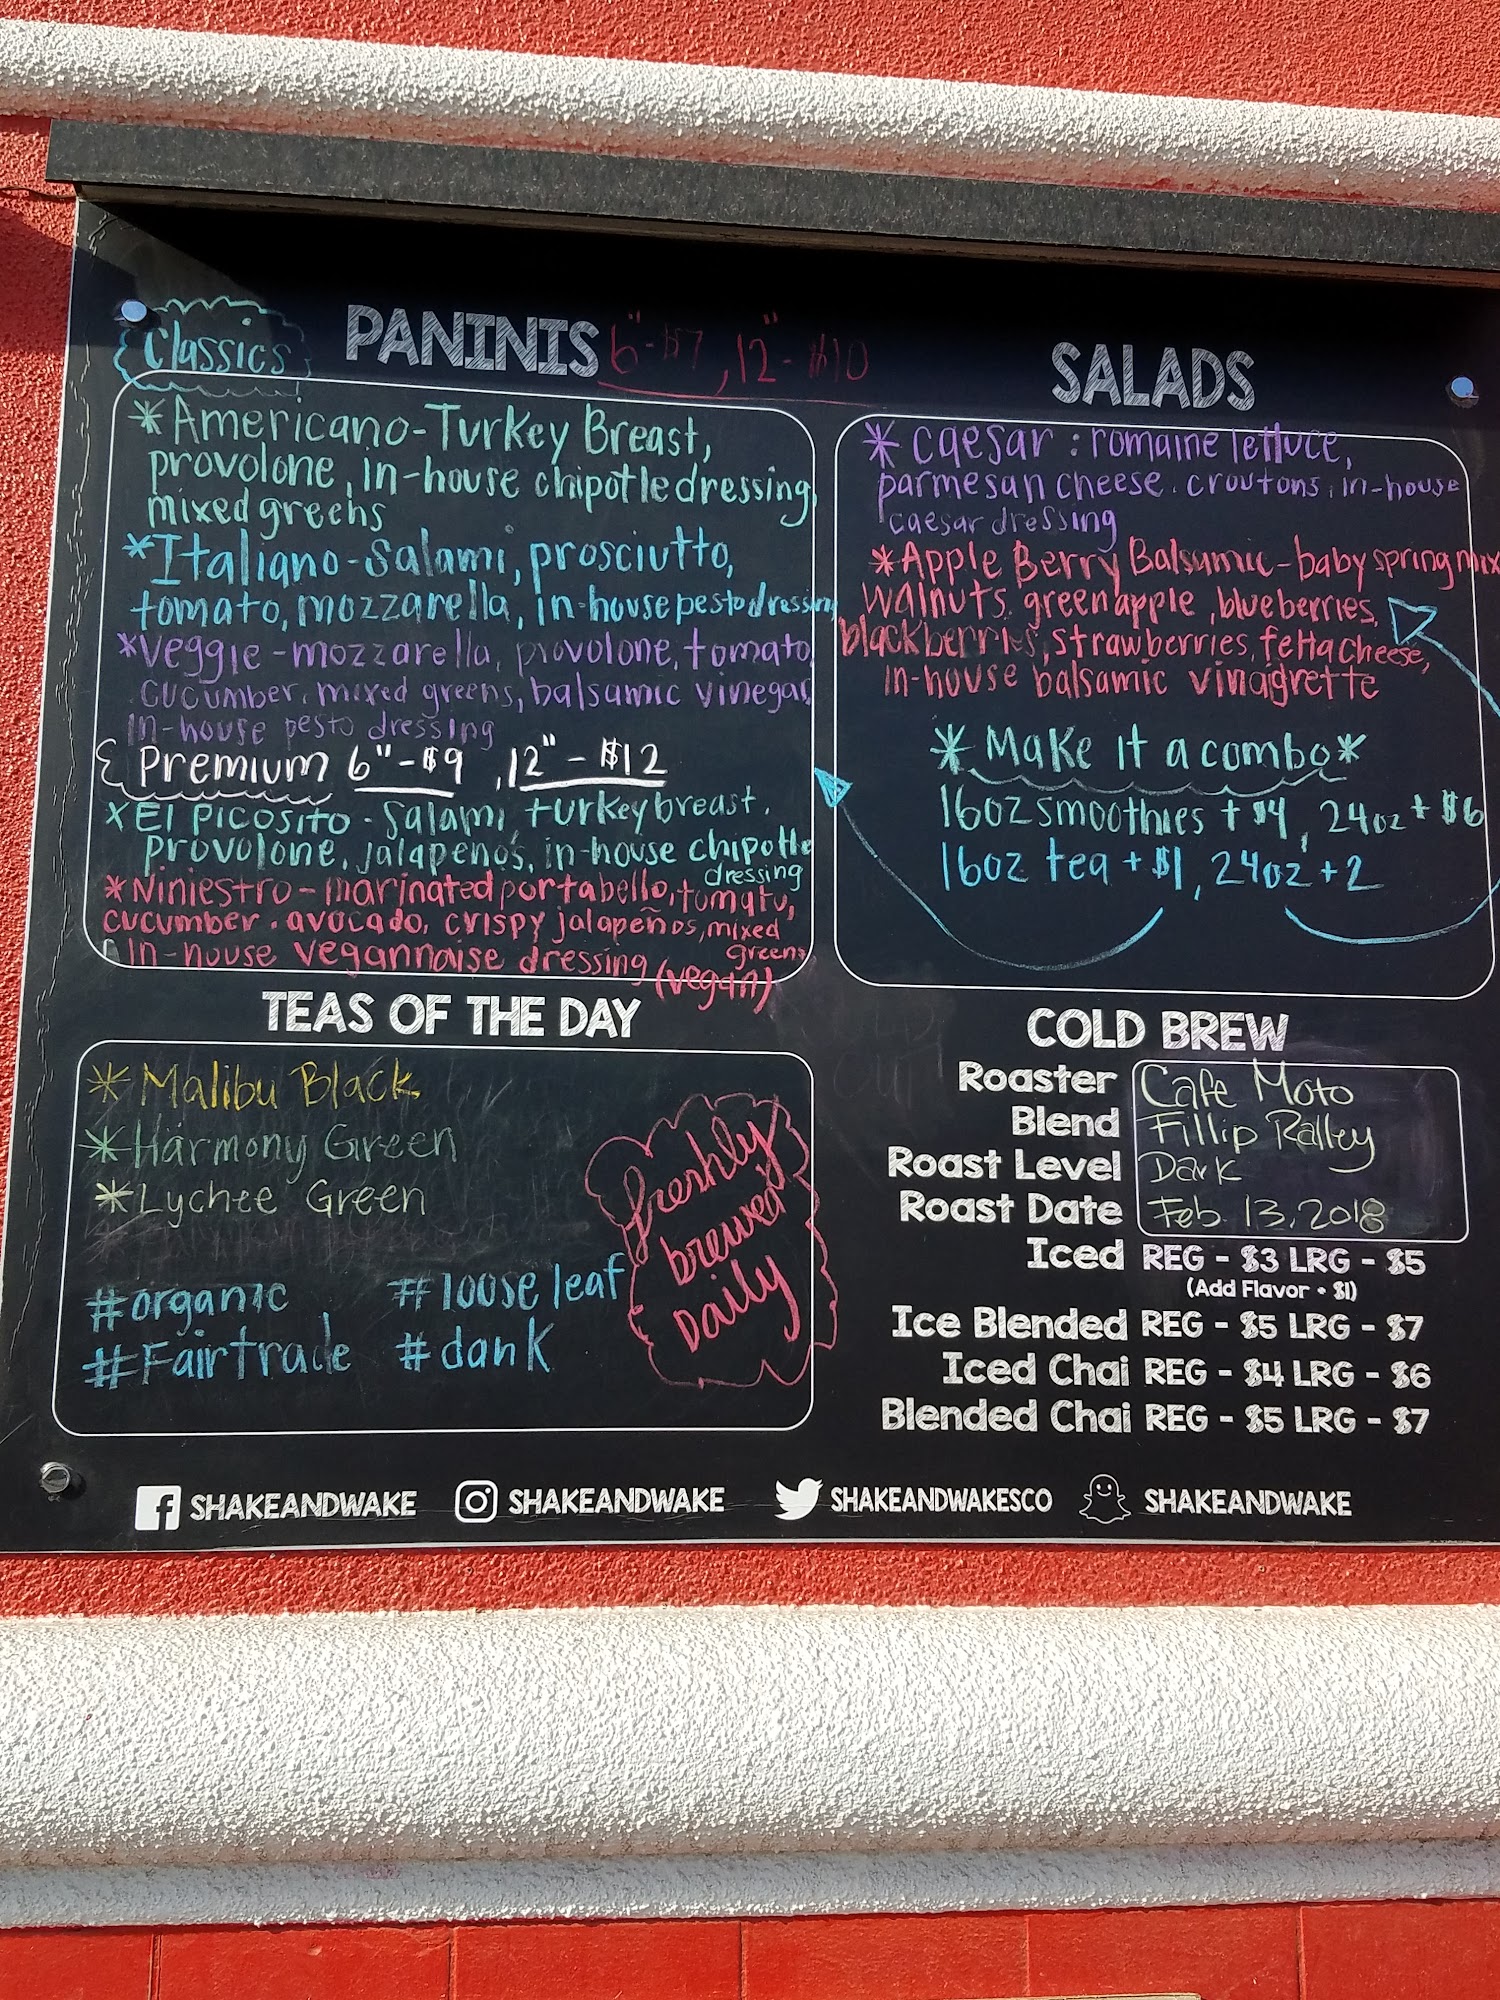 Classics
PANINIS 6"-$7, 12"-$10
*Americano-Turkey Breast,
provolone, in-house chipotle dressing,
mixed greens
*Italiano-Salami, prosciutto,
tomato, mozzarella, in-house pesto dressing
*Veggie-mozzarella, provolone, tomato,
cucumber, mixed greens, balsamic vinegar,
in-house pesto dressing
Premium 6"-$9, 12"-$12
*El Picosito-Salami, turkey breast,
provolone, jalapeños, in-house chipotle
dressing
*Niniestro-marinated portabello, tomato,
cucumber, avocado, crispy jalapeños, mixed
greens
in-house vegannaise dressing (vegan)
SALADS
*Caesar: romaine lettuce,
parmesan cheese, croutons, in-house
caesar dressing
*Apple Berry Balsamic-baby spring mix
walnuts, green apple, blueberries,
blackberries, strawberries, fetta cheese,
in-house balsamic vinaigrette
*Make it a combo*
16oz smoothies +$4, 24oz +$6
16oz tea +$1, 24oz +2
TEAS OF THE DAY
*Malibu Black
*Harmony Green
*Lychee Green
#organic #loose leaf
#Fairtrade #dank
freshly
brewed
Daily
COLD BREW
Roaster Cafe Moto
Blend Fillip Ralley
Roast Level Dark
Roast Date Feb. 13, 2018
Iced REG - $3 LRG - $5
(Add Flavor • $1)
Ice Blended REG - $5 LRG - $7
Iced Chai REG - $4 LRG - $6
Blended Chai REG - $5 LRG - $7
SHAKEANDWAKE SHAKEANDWAKE SHAKEANDWAKESCO SHAKEANDWAKE